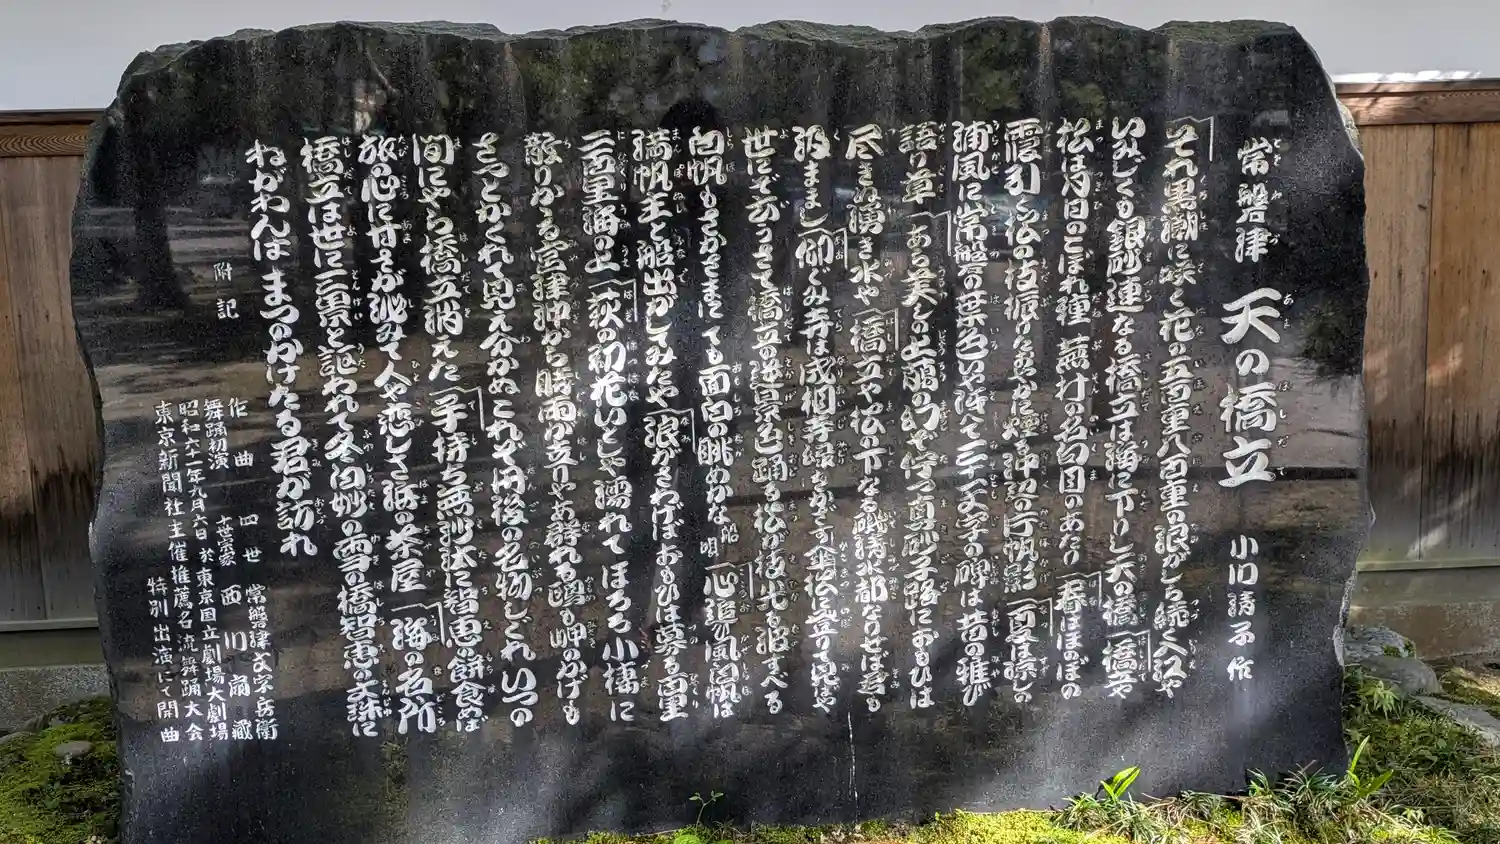 常磐津 天の橋立 小川清子作
それ黒潮に咲く花の五百重八百重の浪がしら続く入江や
いみじくも銀砂連なる橋立は海に下りし天の橋 橋立や
松は月日のこぼれ種 蕪村の名句目のあたり 春はほのぼの
霞引く松の枝振りたおやかに 帆影 夏は涼しの
浦風に常磐の葉色いや冴えて三十一文字の碑は昔の雅び
語り草 ある美しの上﨟の幻や 真砂子路におもひは
尽きぬ湧き水や 橋立や松の下なる磯清水都なりせば君も
汲ままし 仰ぐみ寺は成相寺 傘松に登り見や
世にでうさて橋立の逆景色踊る松が枝光る波すべる
白帆もさかさまに ても面白の眺めかな 船唄 心進む風白帆は
満帆主と船出がしてみたや 浪がさわげばおもひは募る面里
二面里海の上 萩の初花いとしや濡れてほろろ小褄に
散りかかる宮津沖から時雨が立りやお群れる鴎も岬のかげも
さっとかくれて見え分かぬこれぞ丹後の名物しぐれいつの
間にやら橋立消えた 手持ち無沙汰に智恵の餅食めば
旅の心に甘さが沁みて人や恋しさ浜の茶屋 海の名所
橋立は世に三景と謳われて冬白妙の雪の橋智恵の文珠に
ねがわんは まつのかけたる君が訪れ
附記
作曲 四世 常磐津文字兵衛
舞踊初演 十世宗家 西川扇藏
昭和六十一年九月六日 於東京国立劇場大劇場
東京新聞社主催推薦名流舞踊大会
特別出演にて開曲